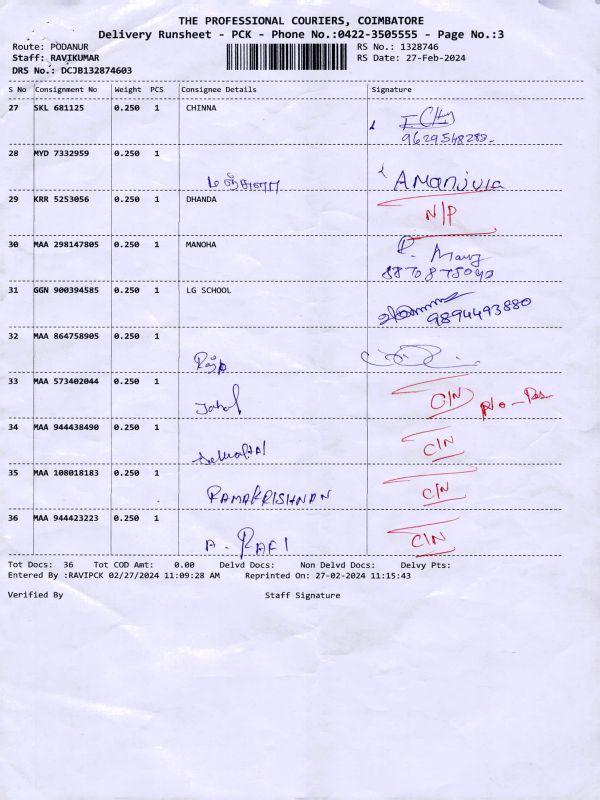 THE PROFESSIONAL COURIERS, COIMBATORE
Delivery Runsheet - PCK - Phone No.:0422-3505555 - Page No.:3
Route: PODANUR RS No.: 1328746
Staff: RAVIKUMAR RS Date: 27-Feb-2024
DRS No.: DCJB132874603
S No Consignment No Weight PCS Consignee Details Signature
27 SKL 681125 0.250 1 CHINNA
9629548289
28 MYD 7332959 0.250 1
மஞ்சுளா A Manjula
29 KRR 5253056 0.250 1 DHANDA N/P
30 MAA 298147805 0.250 1 MANOHA
31 GGN 900394585 0.250 1 LG SCHOOL
9894493880
32 MAA 864758905 0.250 1
33 MAA 573402044 0.250 1 C/N
34 MAA 944438490 0.250 1 C/N
35 MAA 108018183 0.250 1 RAMAKRISHNAN C/N
36 MAA 944423223 0.250 1 A. RAFI C/N
Tot Docs: 36 Tot COD Amt: 0.00 Delvd Docs: Non Delvd Docs: Delvy Pts:
Entered By :RAVIPCK 02/27/2024 11:09:28 AM Reprinted On: 27-02-2024 11:15:43
Verified By Staff Signature